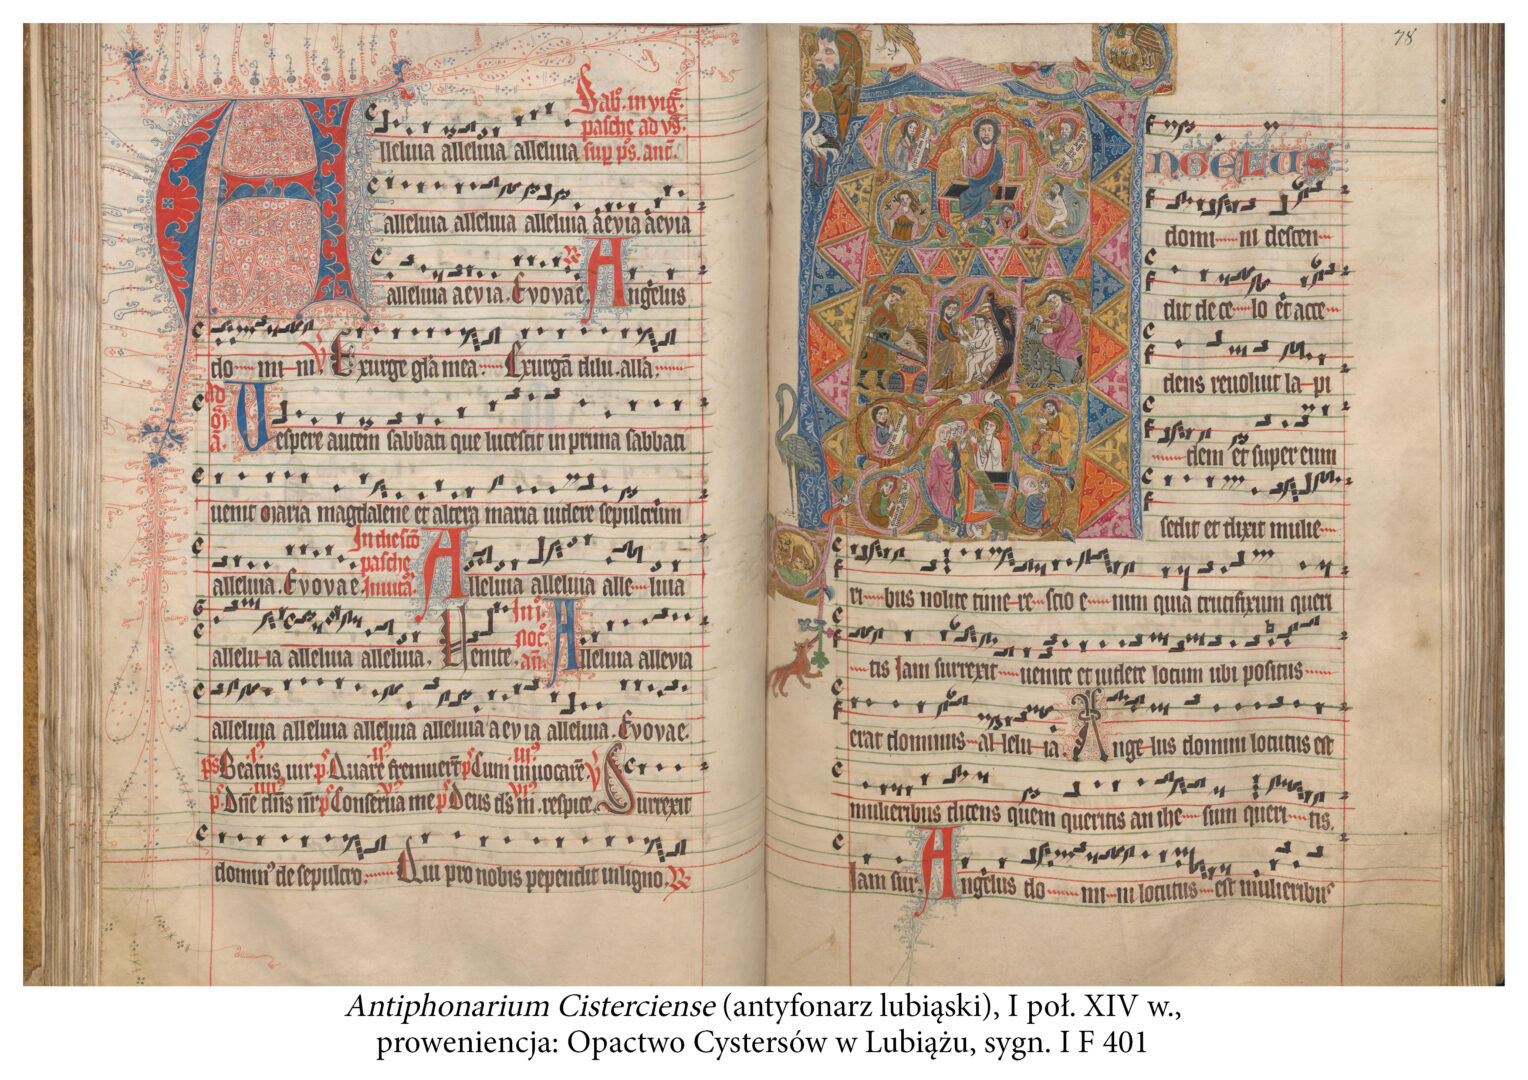 Sabb. in vig.
pasche ad vs.
lleluia alleluia alleluia sup ps. ant.
alleluia alleluia alleluia aevia aevia
alleluia aevia. Evovae. Angelus
do mi ni Exurge gla mea Exurgam dilu. alla.
ad
Vespere autem sabbati que lucescit in prima sabbati
venit maria magdalene et altera maria videre sepulcrum
In die sco
pasche
alleluia. Evovae. Invita. Alleluia alleluia alle luia
In i.
noc.
allelu ia alleluia alleluia. Venite. an. Alleluia allevia
alleluia alleluia alleluia alleluia aevia alleluia. Evovae.
ps Beatus vir p. Quare fremuert p. Cum invocare. Surrexit
p. Dne dns nr p. Conserva me p. Deus ds m. respice.
domin de sepulcro. Qui pro nobis pependit in ligno.
78
NGELUS
domi ni descen
dit de ce lo et acce
dens revoluit la pi
dem et super eum
sedit et dixit mulie
ri bus nolite time re scio e nim quia crucifixum queri
tis Iam surrexit venite et videte locum ubi positus
erat dominus al lelu ia. Ange lus domini locutus est
mulieribus dicens quem queritis an ihe sum queri tis.
Iam sur. Angelus do mi ni locutus est mulierib
Antiphonarium Cisterciense (antyfonarz lubiąski), I poł. XIV w.,
proweniencja: Opactwo Cystersów w Lubiążu, sygn. I F 401